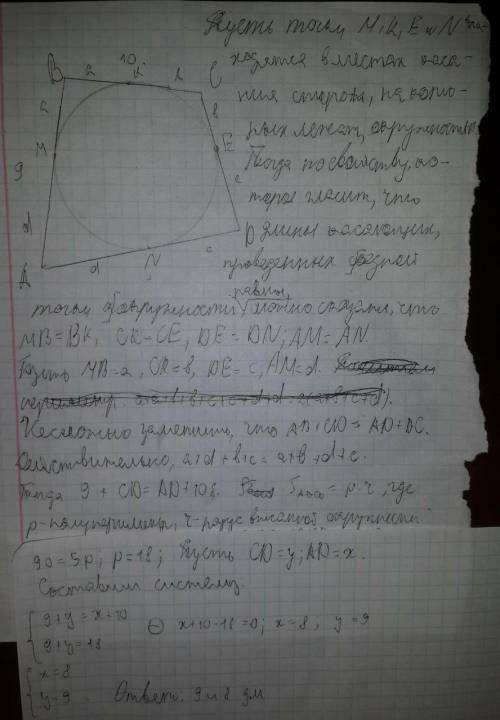 Пусть точки M, K, E и N на-
ходятся в местах каса-
ния сторон, на кото-
рых лежат, окружностью.
Тогда по свойству, ко-
торое гласит, что
длины касающих,
проведенных с одной
точки окружности равны, можно сказать, что
MB=BK, CK=CE, DE=DN; AM=AN.
Пусть MB=a, CK=в, DE=c, AM=d.
Несложно заметить, что AB+CD=AD+BC.
Действительно, a+d+в+c=a+в+d+c.
Тогда 9+CD=AD+10. S = p·r, где
p-полупериметр, r-радиус вписанной окружности
90=5p, p=18; Пусть CD=y; AD=x.
Составим систему
9+y=x+10
9+y=18
x+10-18=0; x=8, y=9
x=8
y=9
Ответ. 9 и 8 дм
B a 10 K C
a в
M E
9 c
d D
A d N c